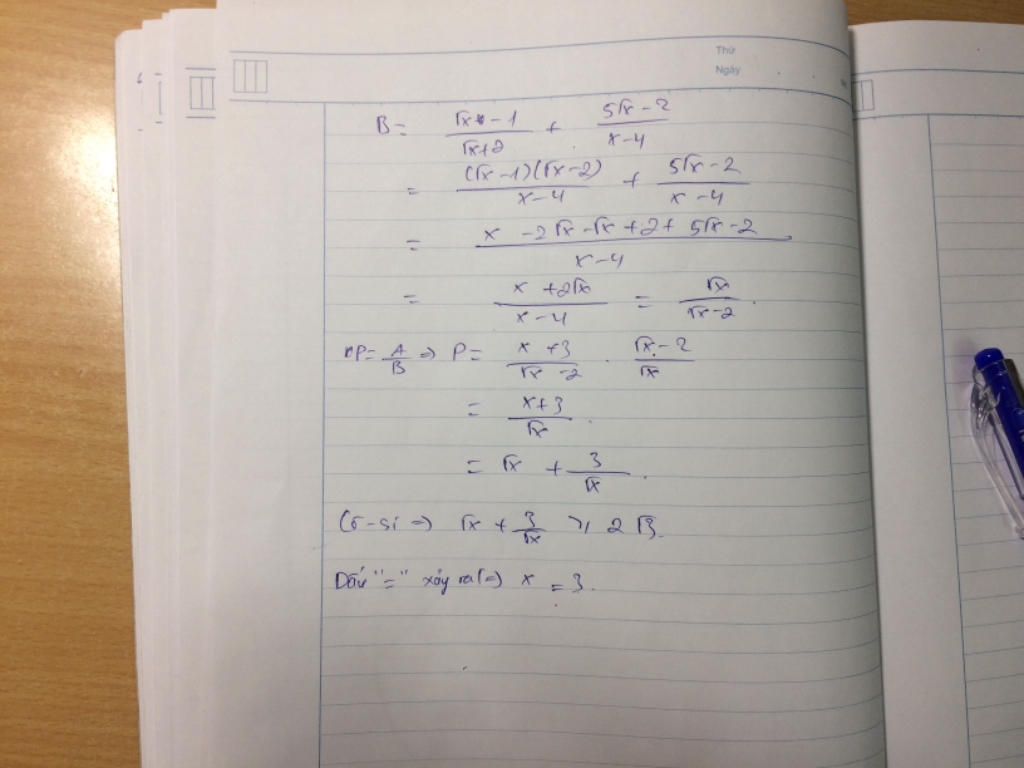 Thứ
Ngày
B = \frac{√x - 1}{√x+2} + \frac{5√x - 2}{x-4}
= \frac{(√x-1)(√x-2)}{x-4} + \frac{5√x-2}{x-4}
= \frac{x - 2√x - √x + 2 + 5√x - 2}{x-4}
= \frac{x + 2√x}{x-4} = \frac{√x}{√x-2}.
P = \frac{A}{B} ⇒ P = \frac{x+3}{√x-2} . \frac{√x-2}{√x}
= \frac{x+3}{√x}.
= √x + \frac{3}{√x}.
Cô-si ⇒ √x + \frac{3}{√x} ≥ 2√3.
Dấu "=" xảy ra ⇔ x = 3.